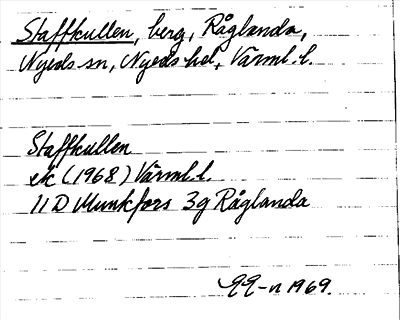 Staffkullen, berg, Råglanda,
Nyeds sn, Nyeds hd, Värml. l.
Staffkullen
ek (1968) Värml. l.
11D Munkfors 3g Råglanda
1969.